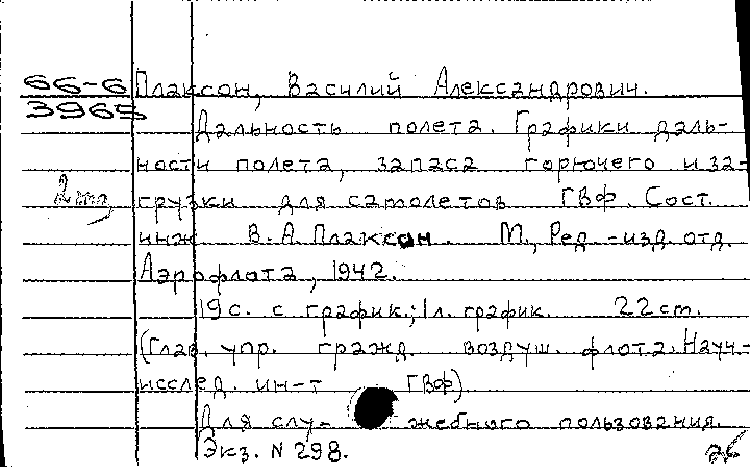 66-6 Плаксон, Василий Александрович.
3965
Дальность полета. Графики даль-
ности полета, запаса горючего и за-
грузки для самолетов ГВФ. Сост.
инж В. А. Плаксон. М., Ред.-изд. отд.
Аэрофлота, 1942.
19 с. с график.; 1 л. график. 22 cm.
(Глав. упр. гражд. воздуш. флота. Науч.-
исслед. ин-т ГВФ)
Для слу- жебного пользования.
Экз. N 298.